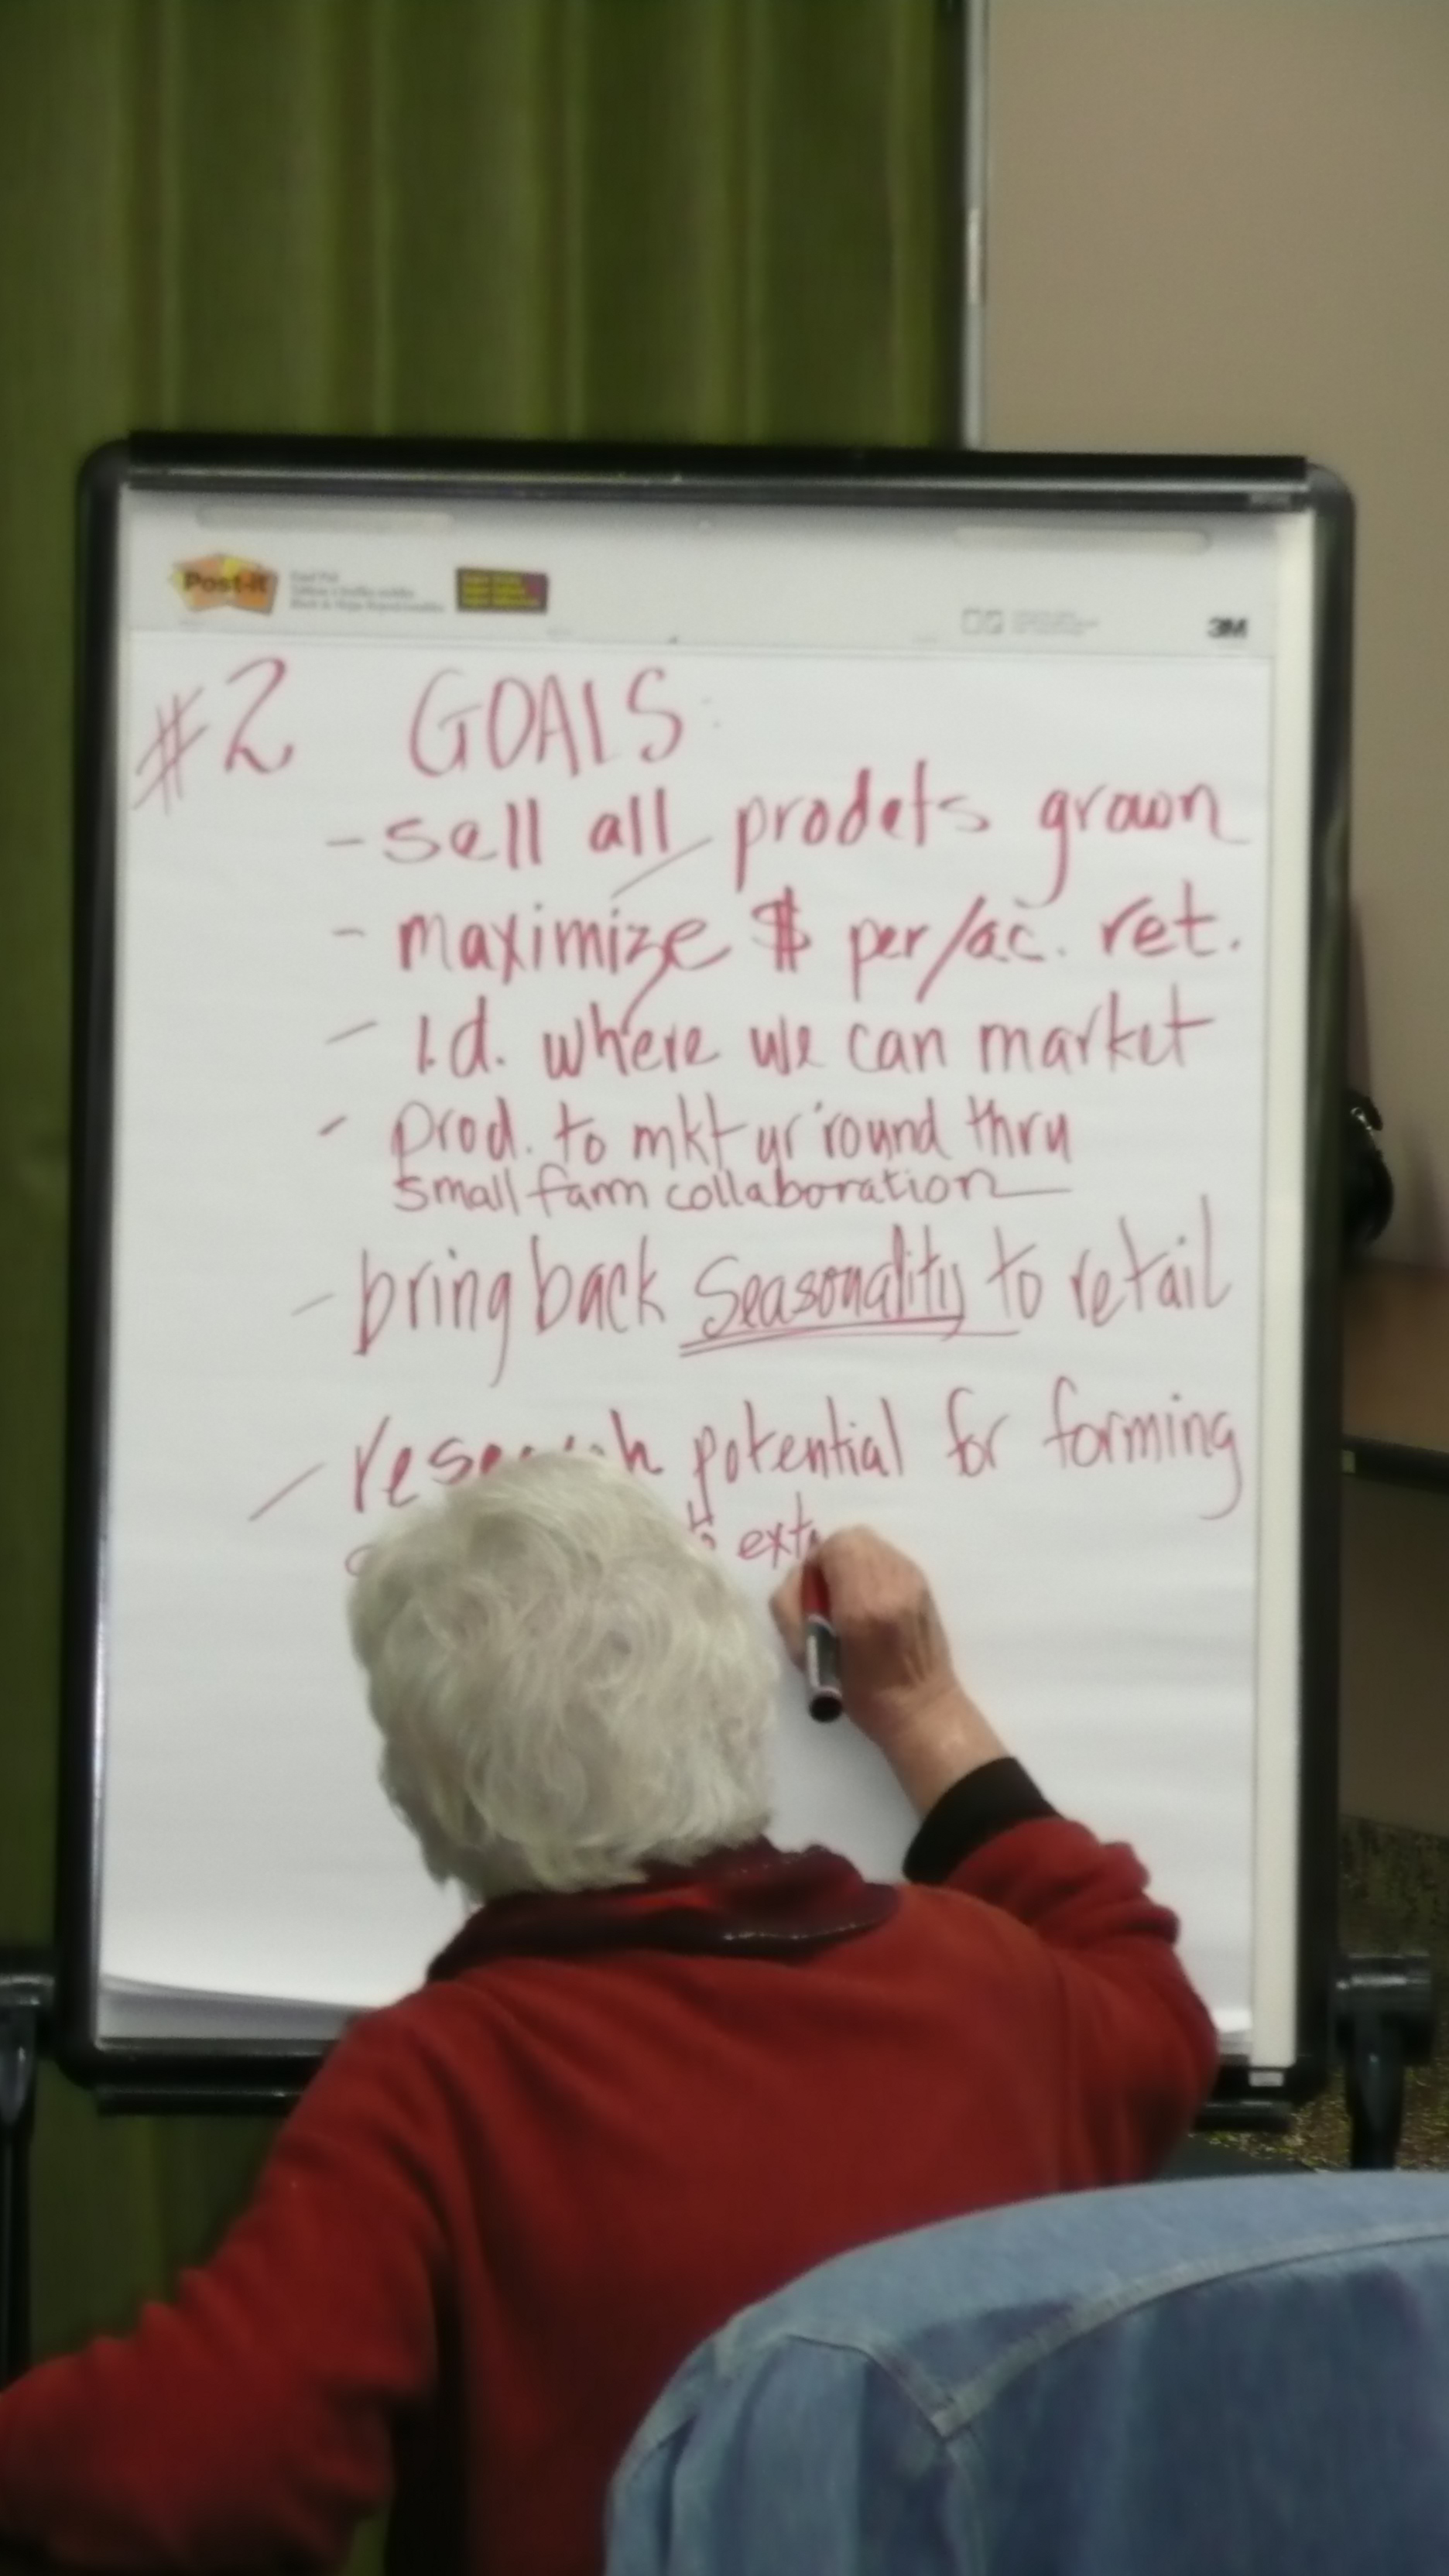 Post-it
3M
#2 GOALS:
- sell all prodcts grown
- maximize $ per/ac. ret.
- I.d. where we can market
- prod. to mkt yr 'round thru
small farm collaboration
- bring back Seasonality to retail
- research potential for forming